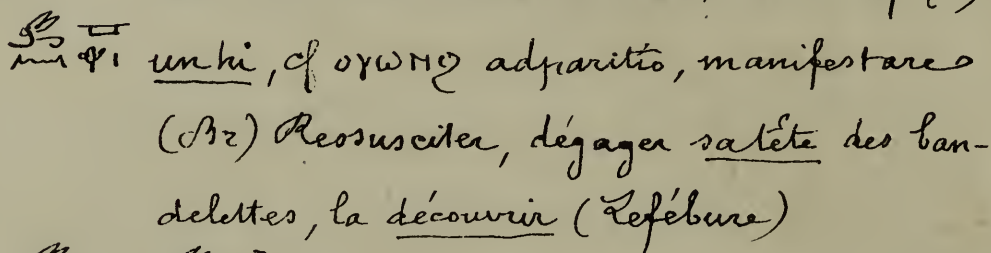 un hi, cf ⲟⲩⲱⲛϩ adparitio, manifestare
(Br) Ressusciter, dégager sa tête des ban-
delettes, la découvrir (Lefébure)